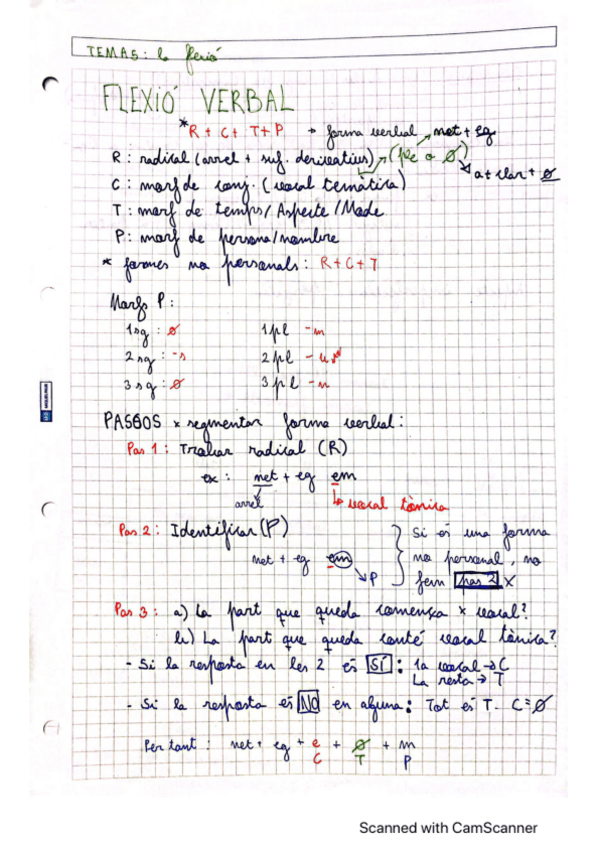 TEMA 5: la flexió
FLEXIÓ VERBAL
* R + C + T + P → forma verbal net + eg
R: radical (arrel + suf. derivatius) → (pe o ∅) → a + clar + ∅
C: morf de conj. (vocal temàtica)
T: morf de temps / Aspecte / Mode
P: morf de persona / nombre
* formes no personals: R + C + T
Morfs P:
1 sg : ∅ 1 pl - m
2 sg : -s 2 pl - u
3 sg : ∅ 3 pl - n
PASSOS x segmentar forma verbal:
Pas 1: Trobar radical (R)
ex: net + eg em
arrel vocal tònica
Pas 2: Identificar (P)
net + eg em → P
Si és una forma no personal, no fem pas 2 X
Pas 3: a) La part que queda comença x vocal?
b) La part que queda conté vocal tònica?
- Si la resposta en les 2 és SÍ: la vocal → C
La resta → T
- Si la resposta és NO en alguna: Tot és T. C = ∅
Per tant: net + eg + e + ∅ + m
C T P
Scanned with CamScanner